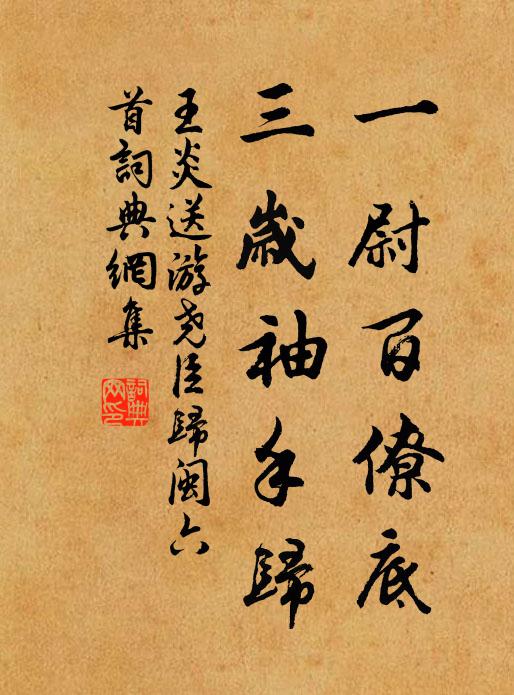 一尉百僚底
三歲袖手歸
王炎送游堯臣歸閩六
首詞典網集
詞典
網印